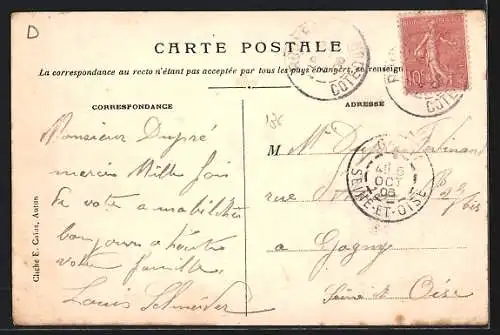 D
CARTE POSTALE
La correspondance au recto n'étant pas acceptée par tous les pays étrangers, se renseign
CORRESPONDANCE
ADRESSE
Monsieur Dupré
merci Mille fois
de votre amabilité
bonjour à toute
votre famille
Louis Schneider
M
rue
à Gagny
Seine & Oise
SEINE-ET-OISE
OCT
COTE D'OR
10
Cliché E. Autun